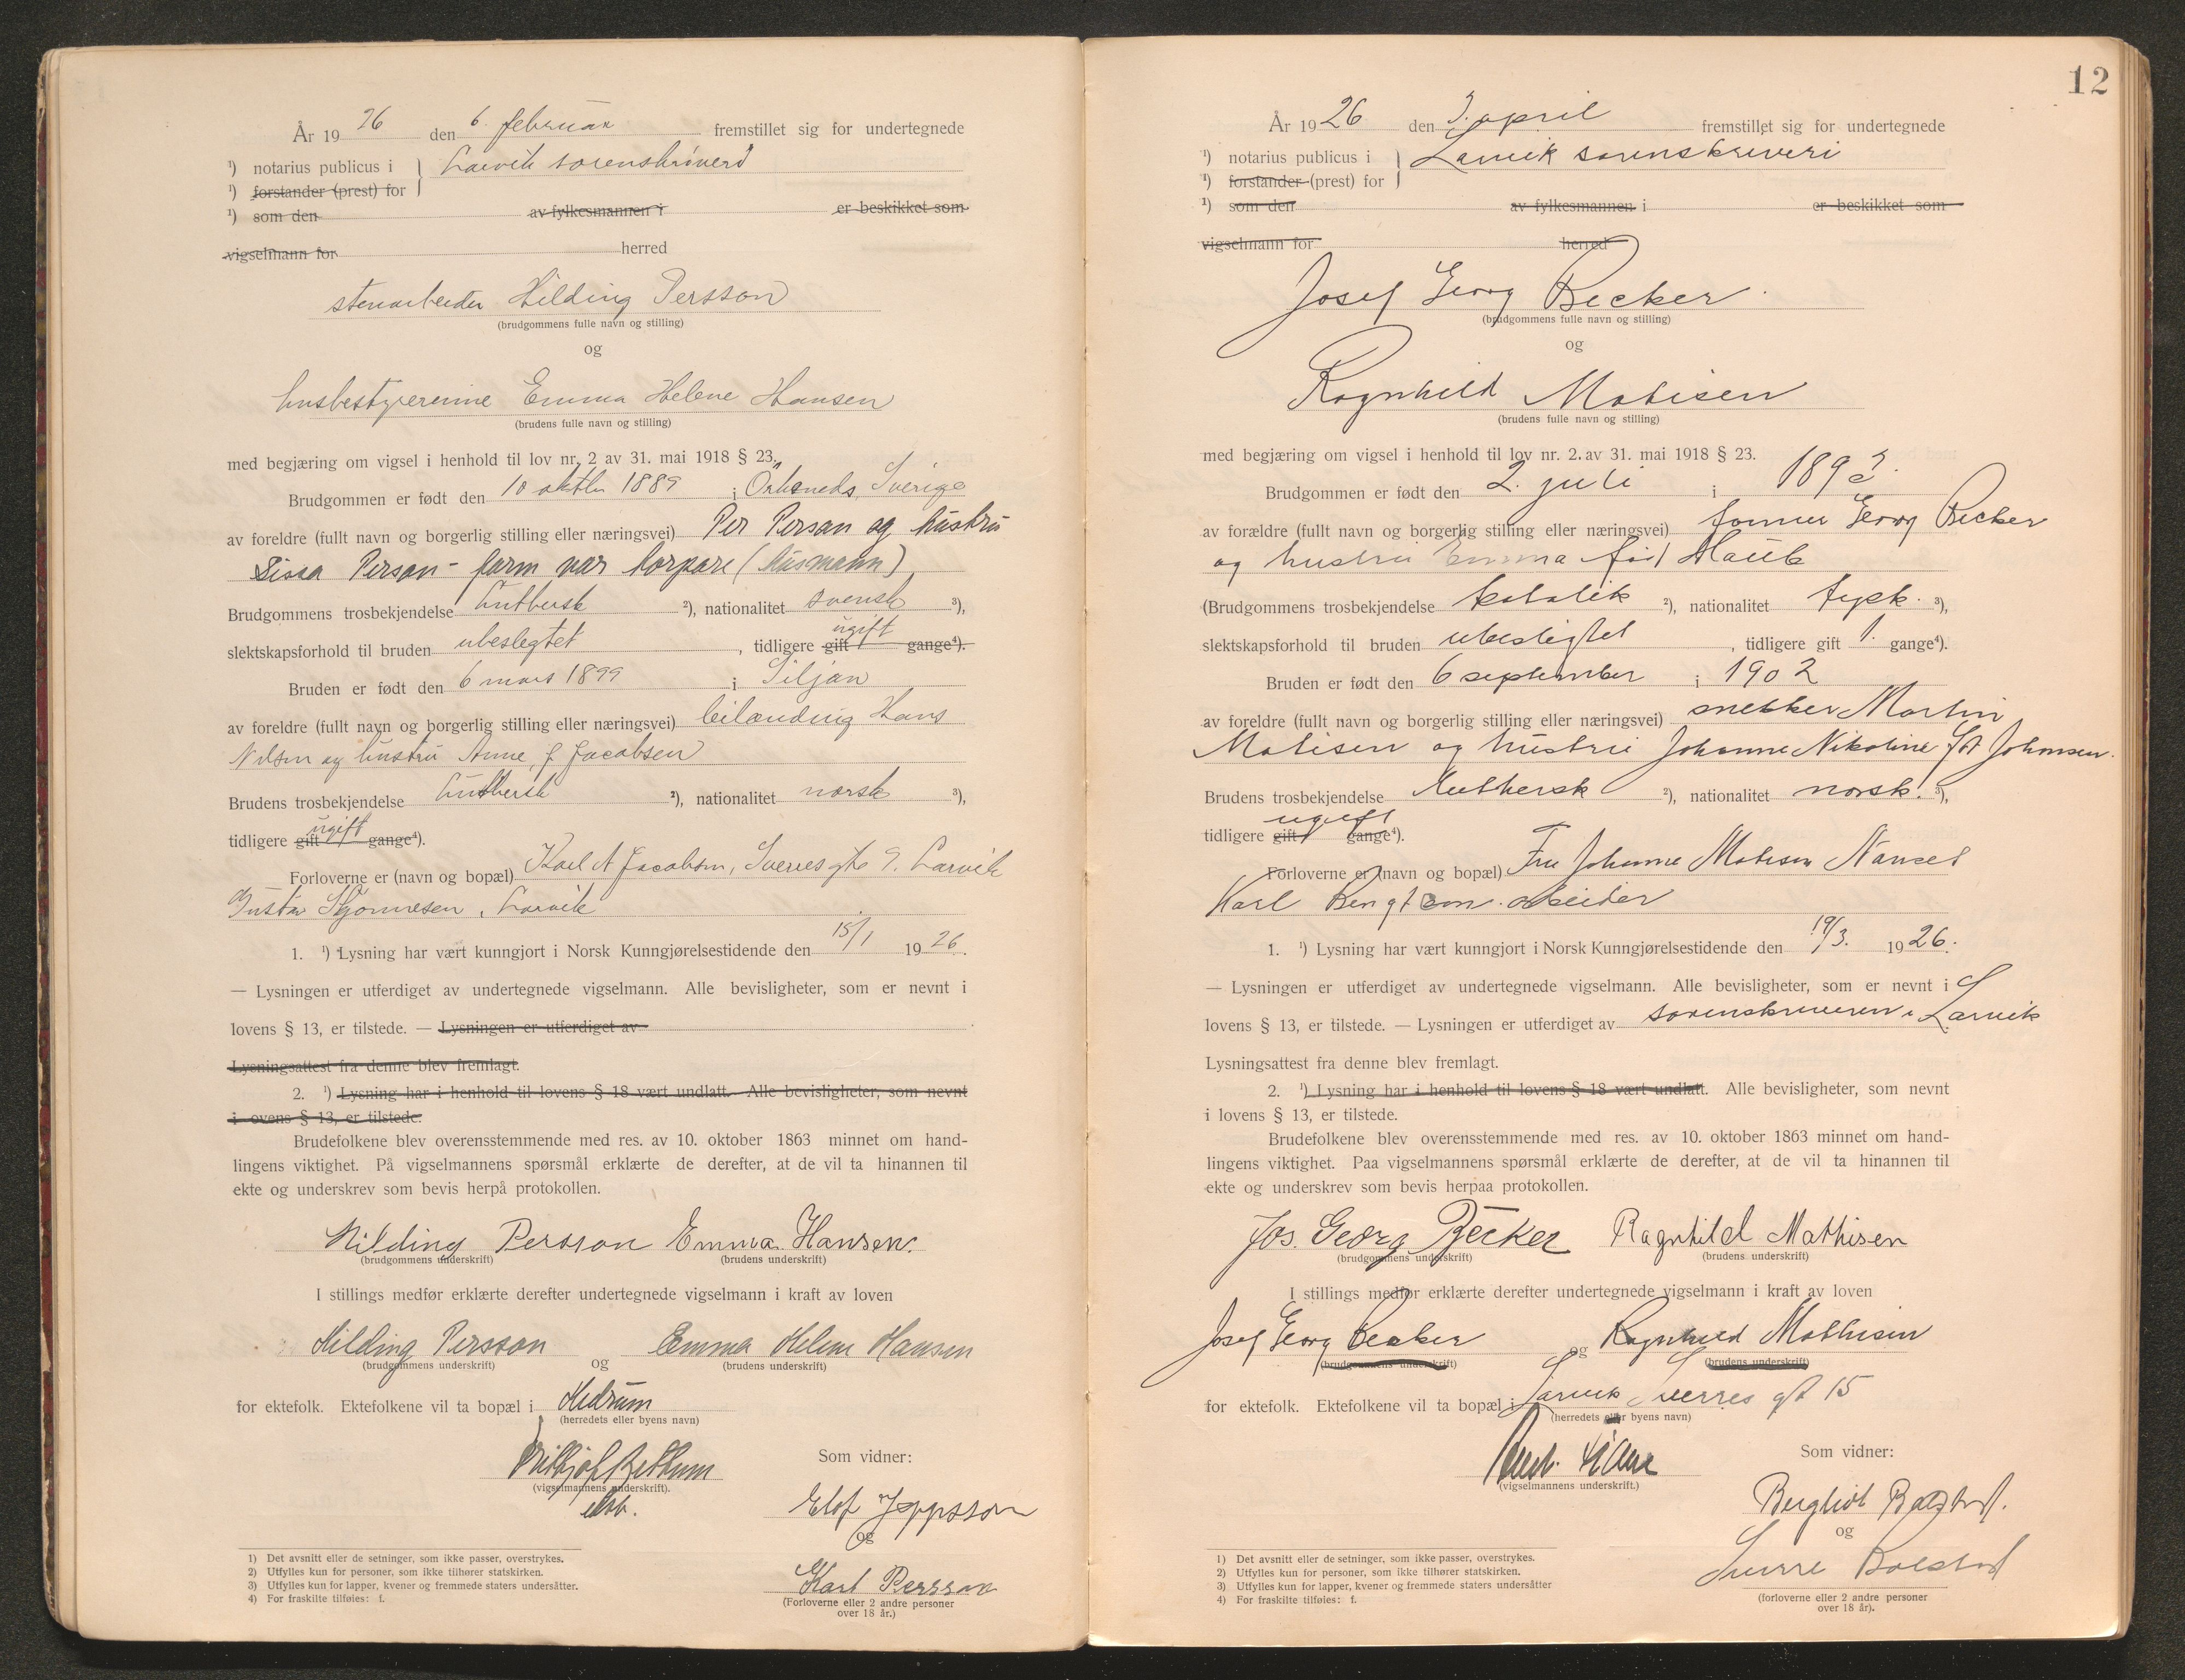 År 1926 den 6. februar fremstillet sig for undertegnede
¹) notarius publicus i } Larvik sorenskriveri
¹) forstander (prest) for
¹) som den av fylkesmannen i er beskikket som
vigselmann for herred
stenarbeider Hilding Persson
(brudgommens fulle navn og stilling)
og
husbestyrerinne Emma Helene Hansen
(brudens fulle navn og stilling)
med begjæring om vigsel i henhold til lov nr. 2 av 31. mai 1918 § 23.
Brudgommen er født den 10 oktbr 1889 i Sverige
av foreldre (fullt navn og borgerlig stilling eller næringsvei) Per Person og hustru
Sissa Person - farm var torpare (husmann)
Brudgommens trosbekjendelse luthersk ²), nationalitet svensk ³),
slektskapsforhold til bruden ubeslegtet, tidligere gift ugift gange⁴).
Bruden er født den 6 mars 1899 i Siljan
av foreldre (fullt navn og borgerlig stilling eller næringsvei) leilænding Hans
Nilsen og hustru Anne f. Jacobsen
Brudens trosbekjendelse Luthersk ²), nationalitet norsk ³),
tidligere gift ugift gange⁴).
Forloverne er (navn og bopæl) Karl A Jacobsen, Sverresgte 9. Larvik
Gustav, Larvik
1. ¹) Lysning har vært kunngjort i Norsk Kunngjørelsestidende den 15/1 1926.
— Lysningen er utferdiget av undertegnede vigselmann. Alle bevisligheter, som er nevnt i
lovens § 13, er tilstede. — Lysningen er utferdiget av
Lysningsattest fra denne blev fremlagt.
2. ¹) Lysning har i henhold til lovens § 18 vært undlatt. Alle bevisligheter, som nevnt
i ovens § 13, er tilstede.
Brudefolkene blev overensstemmende med res. av 10. oktober 1863 minnet om hand-
lingens viktighet. På vigselmannens spørsmål erklærte de derefter, at de vil ta hinannen til
ekte og underskrev som bevis herpå protokollen.
Hilding Persson Emma Hansen.
(brudgommens underskrift) (brudens underskrift)
I stillings medfør erklærte derefter undertegnede vigselmann i kraft av loven
Hilding Persson og Emma Helene Hansen
(brudgommens underskrift) (brudens underskrift)
for ektefolk. Ektefolkene vil ta bopæl i Hedrum
(herredets eller byens navn)
Som vidner:
(vigselmannens underskrift).
Elof Jeppsson
og
Karl Persson
(Forloverne eller 2 andre personer
over 18 år.)
1) Det avsnitt eller de setninger, som ikke passer, overstrykes.
2) Utfylles kun for personer, som ikke tilhører statskirken.
3) Utfylles kun for lapper, kvener og fremmede staters undersåtter.
4) For fraskilte tilføies: f.
12
År 1926 den 3. april fremstillet sig for undertegnede
¹) notarius publicus i } Larvik sorenskriveri
¹) forstander (prest) for
¹) som den av fylkesmannen i er beskikket som
vigselmann for herred
Josef Georg Becker.
(brudgommens fulle navn og stilling)
og
Ragnhild Matisen
(brudens fulle navn og stilling)
med begjæring om vigsel i henhold til lov nr. 2. av 31. mai 1918 § 23.
Brudgommen er født den 2. juli i 1893.
av forældre (fullt navn og borgerlig stilling eller næringsvei) Georg Becker
og hustru Emma født Haub
(Brudgommens trosbekjendelse katolik ²), nationalitet tysk. ³),
slektskapsforhold til bruden ubeslegtet, tidligere gift 1. gange⁴).
Bruden er født den 6 september i 1902
av foreldre (fullt navn og borgerlig stilling eller næringsvei) snekker Martin
Matisen og hustru Johanne Nikoline født Johnsen.
Brudens trosbekjendelse luthersk ²), nationalitet norsk. ³),
tidligere gift ugift gange⁴).
Forloverne er (navn og bopæl) Fru Johanne Matisen Nanset
Karl Bengtson. arbeider
1. ¹) Lysning har vært kunngjort i Norsk Kunngjørelsestidende den 19/3. 1926.
— Lysningen er utferdiget av undertegnede vigselmann. Alle bevisligheter, som er nevnt i
lovens § 13, er tilstede. — Lysningen er utferdiget av sorenskriveren i Larvik
Lysningsattest fra denne blev fremlagt.
2. ¹) Lysning har i henhold til lovens § 18 vært undlatt. Alle bevisligheter, som nevnt
i lovens § 13, er tilstede.
Brudefolkene blev overensstemmende med res. av 10. oktober 1863 minnet om hand-
lingens viktighet. Paa vigselmannens spørsmål erklærte de derefter, at de vil ta hinannen til
ekte og underskrev som bevis herpaa protokollen.
Jos. Georg Becker Ragnhild Mathisen
(brudgommens underskrift) (brudens underskrift)
I stillings medfør erklærte derefter undertegnede vigselmann i kraft av loven
Josef Georg Becker og Ragnhild Mathisen
(brudgommens underskrift) (brudens underskrift)
for ektefolk. Ektefolkene vil ta bopæl i Larvik Sverres gt 15
(herredets eller byens navn)
Som vidner:
(vigselmannens underskrift.)
Bergliot Bolstad.
og
Sverre Bolstad
(forloverne eller 2 andre personer
over 18 år).
1) Det avsnitt eller de setninger, som ikke passer, overstrykes.
2) Utfylles kun for personer, som ikke tilhører statskirken.
3) Utfylles kun for lapper, kvener og fremmede staters undersåtter
4) For fraskilte tilføies: f.